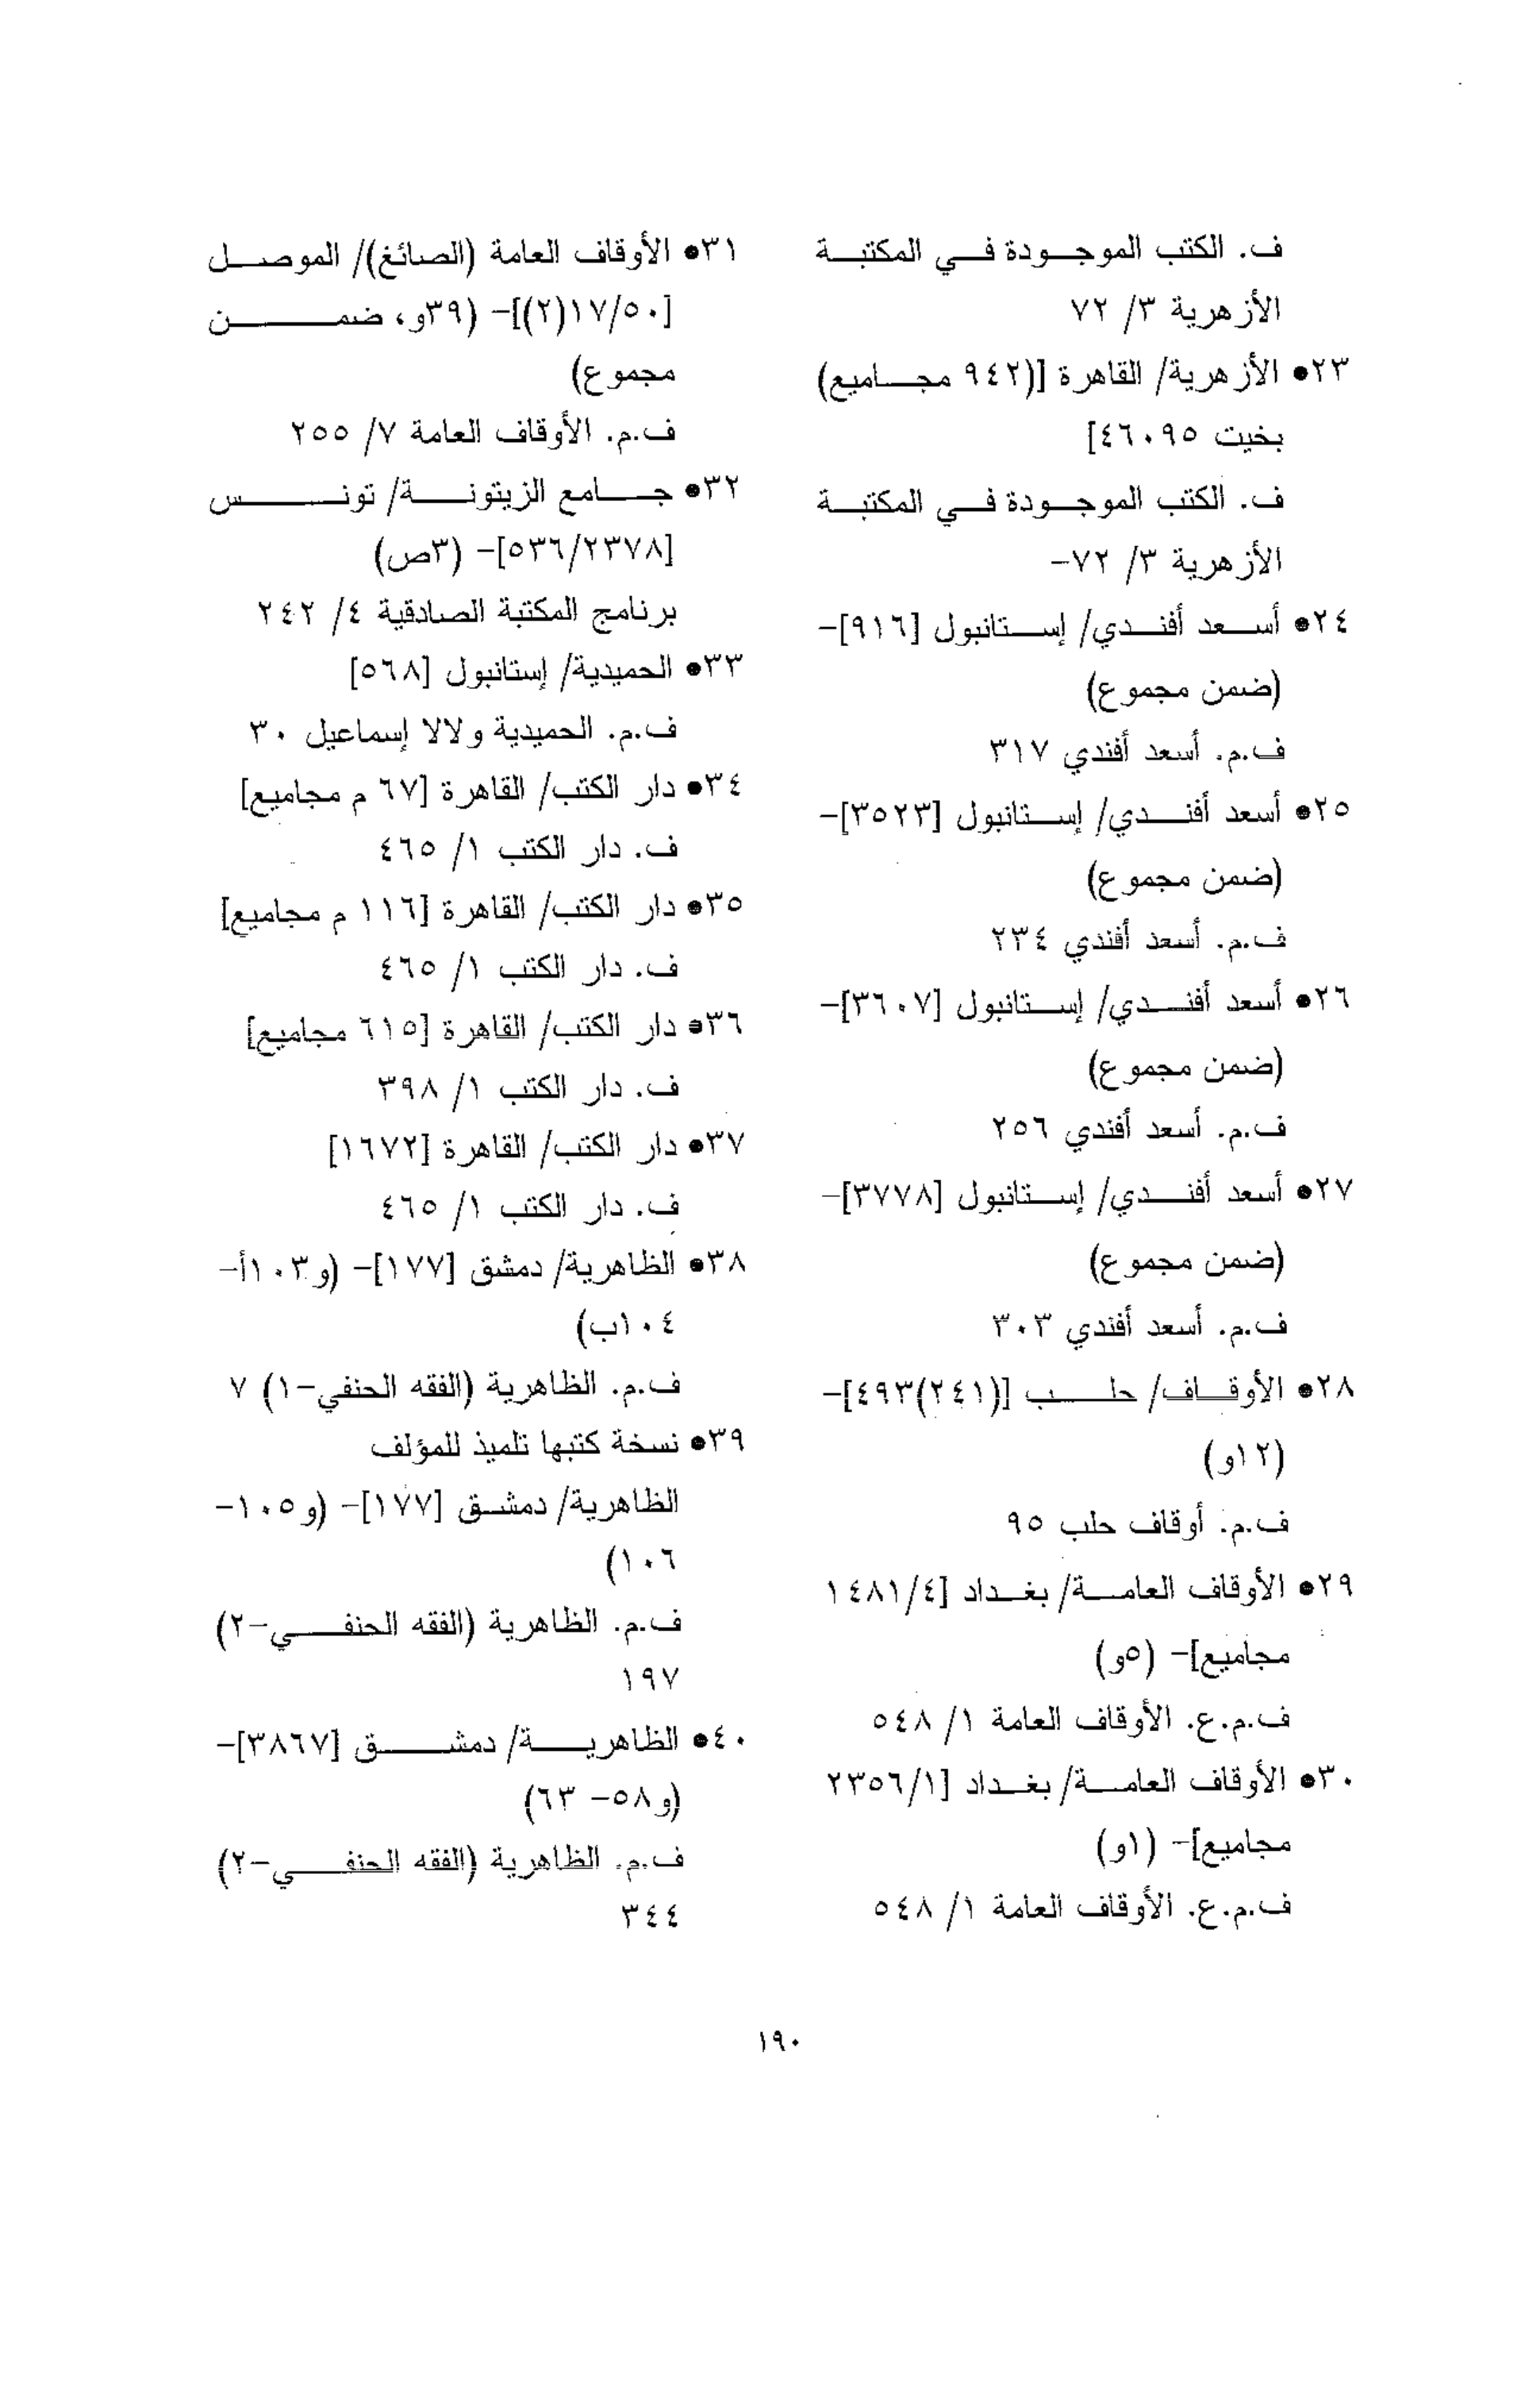 ف. الكتب الموجودة في المكتبة
الأزهرية ٣/ ٧٢
٢٣• الأزهرية/ القاهرة [(٩٤٢ مجاميع)
بخيت ٤٦٠٩٥]
ف. الكتب الموجودة في المكتبة
الأزهرية ٣/ ٧٢-
٢٤• أسعد أفندي/ إستانبول [٩١٦]-
(ضمن مجموع)
ف.م. أسعد أفندي ٣١٧
٢٥• أسعد أفندي/ إستانبول [٣٥٢٣]-
(ضمن مجموع)
ف.م. أسعد أفندي ٢٣٤
٢٦• أسعد أفندي/ إستانبول [٣٦٠٧]-
(ضمن مجموع)
ف.م. أسعد أفندي ٢٥٦
٢٧• أسعد أفندي/ إستانبول [٣٧٧٨]-
(ضمن مجموع)
ف.م. أسعد أفندي ٣٠٣
٢٨• الأوقاف/ حلب [(٢٤١)٤٩٣]-
(١٢و)
ف.م. أوقاف حلب ٩٥
٢٩• الأوقاف العامة/ بغداد [١٤٨١/٤
مجاميع]- (٥و)
ف.م.ع. الأوقاف العامة ١/ ٥٤٨
٣٠• الأوقاف العامة/ بغداد [٢٣٥٦/١
مجاميع]- (١و)
ف.م.ع. الأوقاف العامة ١/ ٥٤٨
٣١• الأوقاف العامة (الصائغ)/ الموصل
[١٧/٥٠(٢)]- (٣٩و، ضمن
مجموع)
ف.م. الأوقاف العامة ٧/ ٢٥٥
٣٢• جامع الزيتونة/ تونس
[٥٣٦/٢٣٧٨]- (٣ص)
برنامج المكتبة الصادقية ٤/ ٢٤٢
٣٣• الحميدية/ إستانبول [٥٦٨]
ف.م. الحميدية ولالا إسماعيل ٣٠
٣٤• دار الكتب/ القاهرة [٦٧ م مجاميع]
ف. دار الكتب ١/ ٤٦٥
٣٥• دار الكتب/ القاهرة [١١٦ م مجاميع]
ف. دار الكتب ١/ ٤٦٥
٣٦• دار الكتب/ القاهرة [٦١٥ مجاميع]
ف. دار الكتب ١/ ٣٩٨
٣٧• دار الكتب/ القاهرة [١٦٧٢]
ف. دار الكتب ١/ ٤٦٥
٣٨• الظاهرية/ دمشق [١٧٧]- (و١٠٣أ-
١٠٤ب)
ف.م. الظاهرية (الفقه الحنفي-١) ٧
٣٩• نسخة كتبها تلميذ للمؤلف
الظاهرية/ دمشق [١٧٧]- (و١٠٥-
١٠٦)
ف.م. الظاهرية (الفقه الحنفي-٢)
١٩٧
٤٠• الظاهرية/ دمشق [٣٨٦٧]-
(و٥٨- ٦٣)
ف.م. الظاهرية (الفقه الحنفي-٢)
٣٤٤
١٩٠